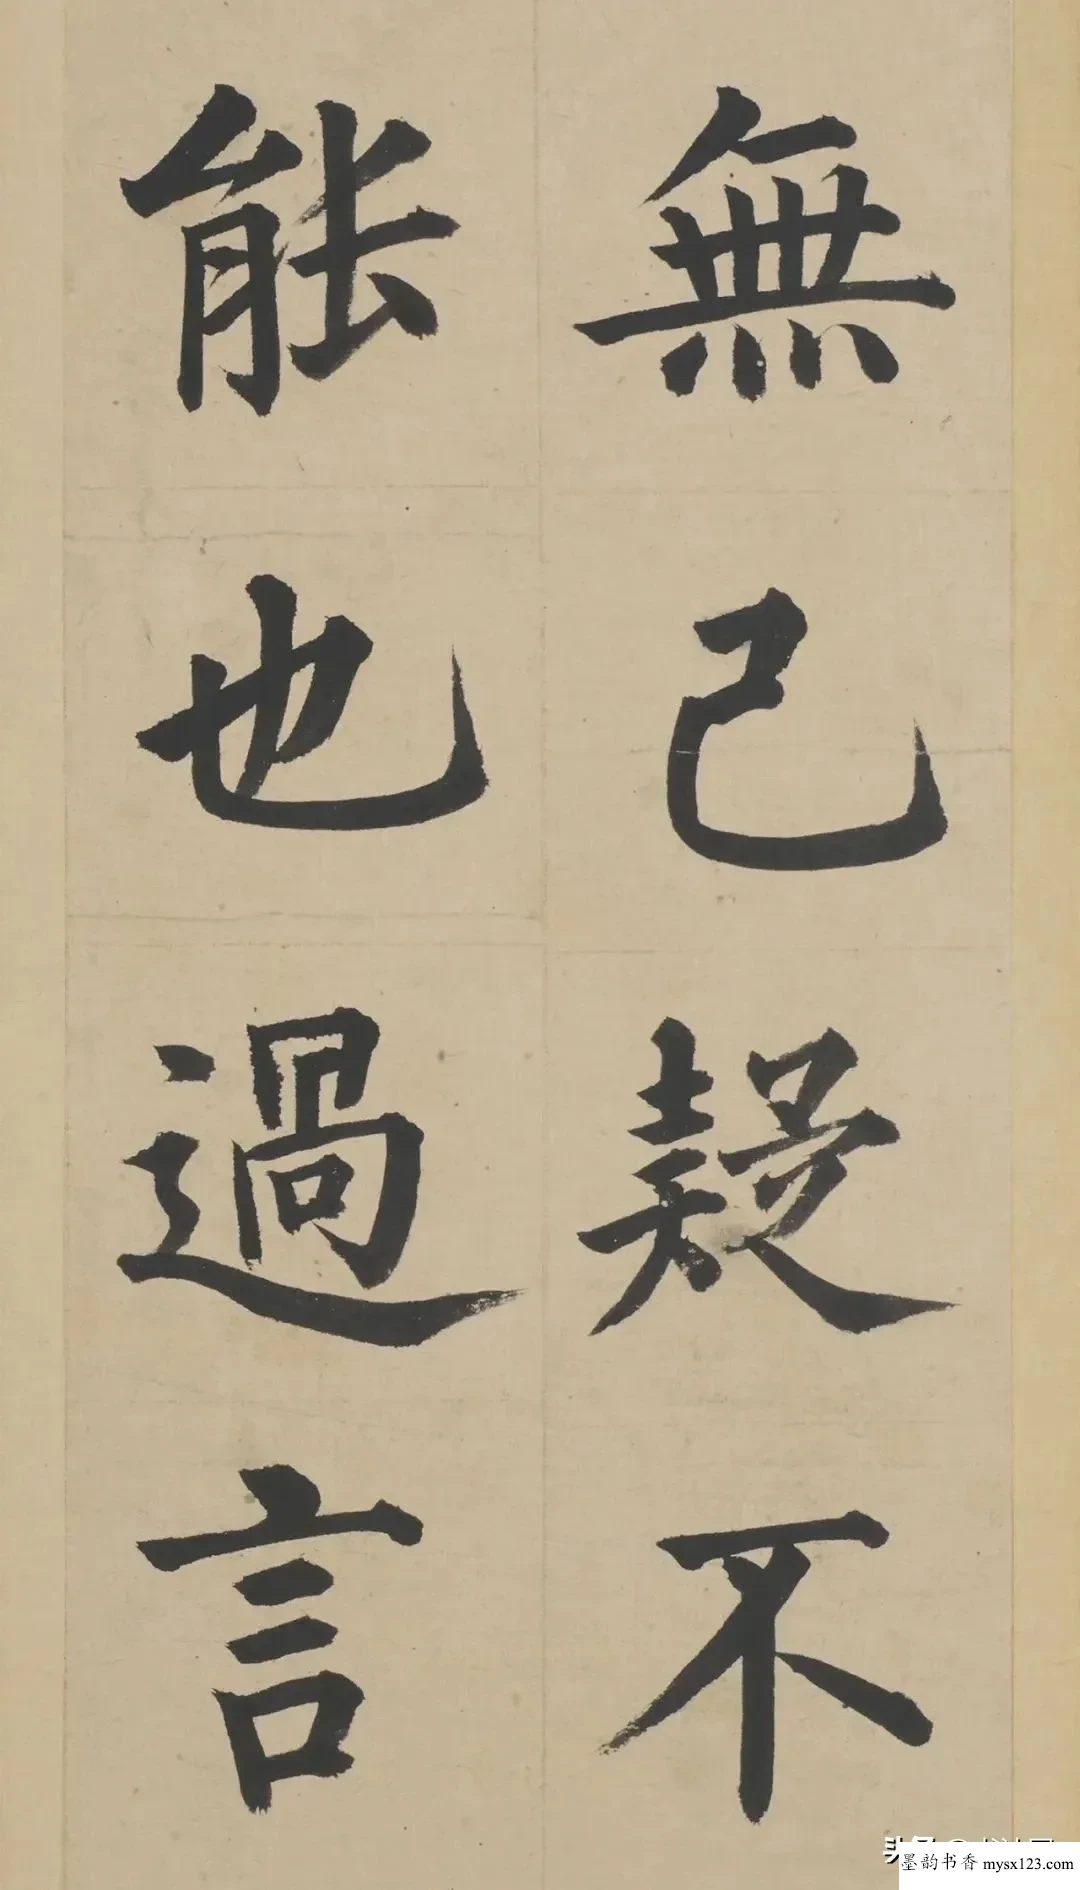 無己疑不
能也過言
墨韵书香 mysx123.com